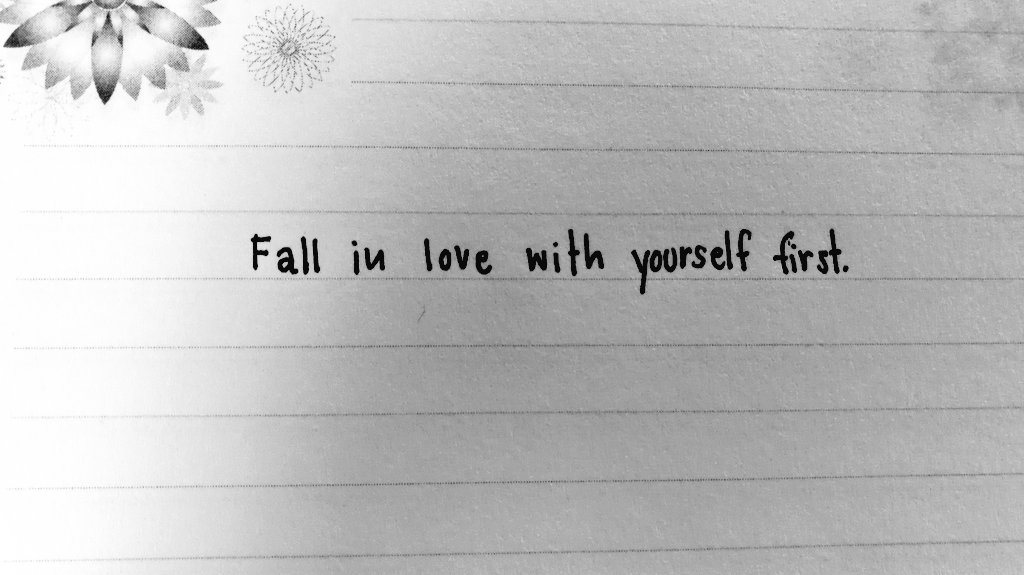 Fall in love with yourself first.